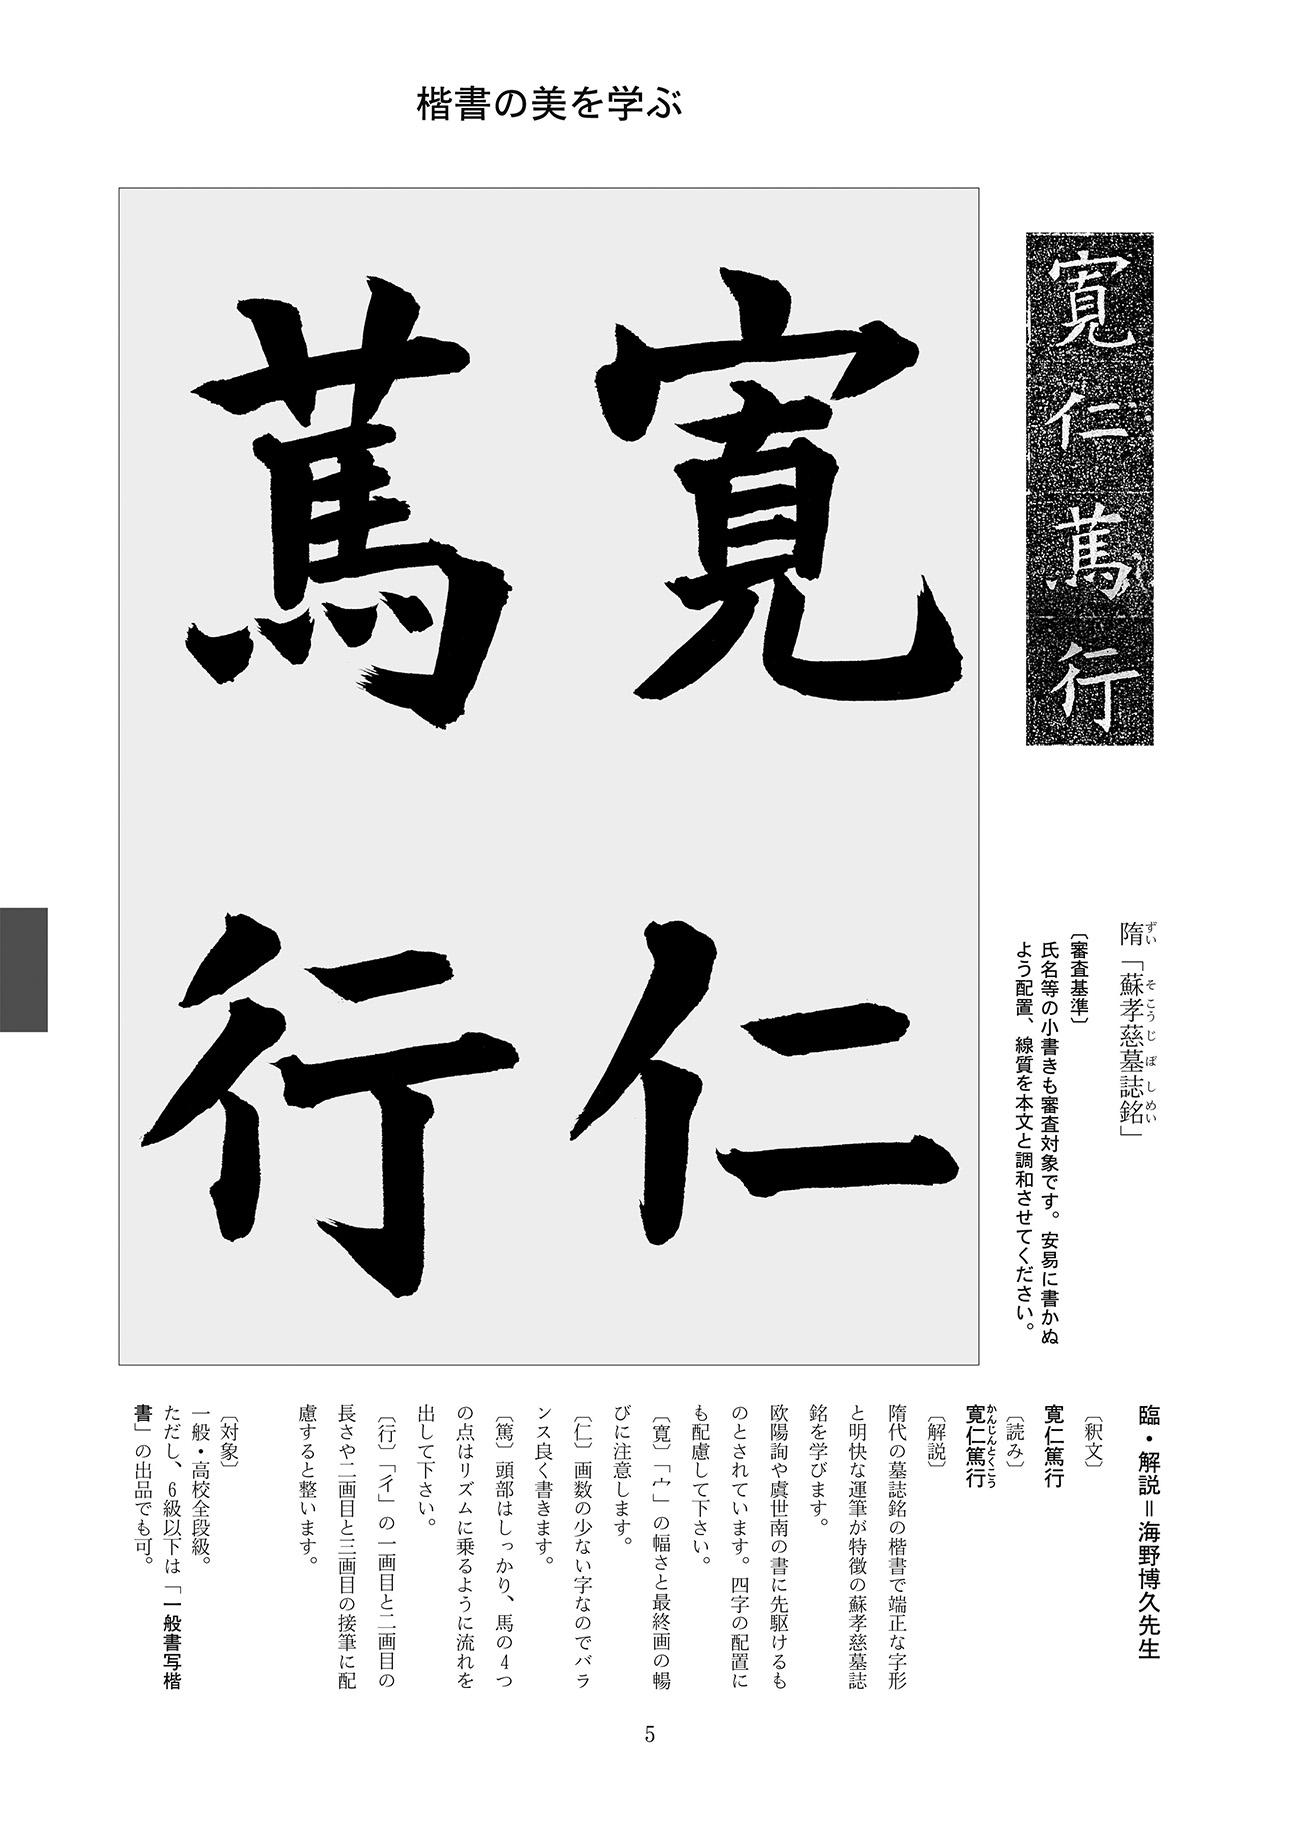 楷書の美を学ぶ
寛仁篤行
寛仁
篤行
隋「蘇孝慈墓誌銘」
ずい そこうじぼしめい
〔審査基準〕
氏名等の小書きも審査対象です。安易に書かぬ
よう配置、線質を本文と調和させてください。
臨・解説＝海野博久先生
〔釈文〕
寛仁篤行
〔読み〕
かんじんとくこう
寛仁篤行
〔解説〕
隋代の墓誌銘の楷書で端正な字形
と明快な運筆が特徴の蘇孝慈墓誌
銘を学びます。
欧陽詢や虞世南の書に先駆けるも
のとされています。四字の配置に
も配慮して下さい。
〔寛〕「宀」の幅さと最終画の暢
びに注意します。
〔仁〕画数の少ない字なのでバラ
ンス良く書きます。
〔篤〕頭部はしっかり、馬の4つ
の点はリズムに乗るように流れを
出して下さい。
〔行〕「彳」の一画目と二画目の
長さや二画目と三画目の接筆に配
慮すると整います。
〔対象〕
一般・高校全段級。
ただし、6級以下は「一般書写楷
書」の出品でも可。
5